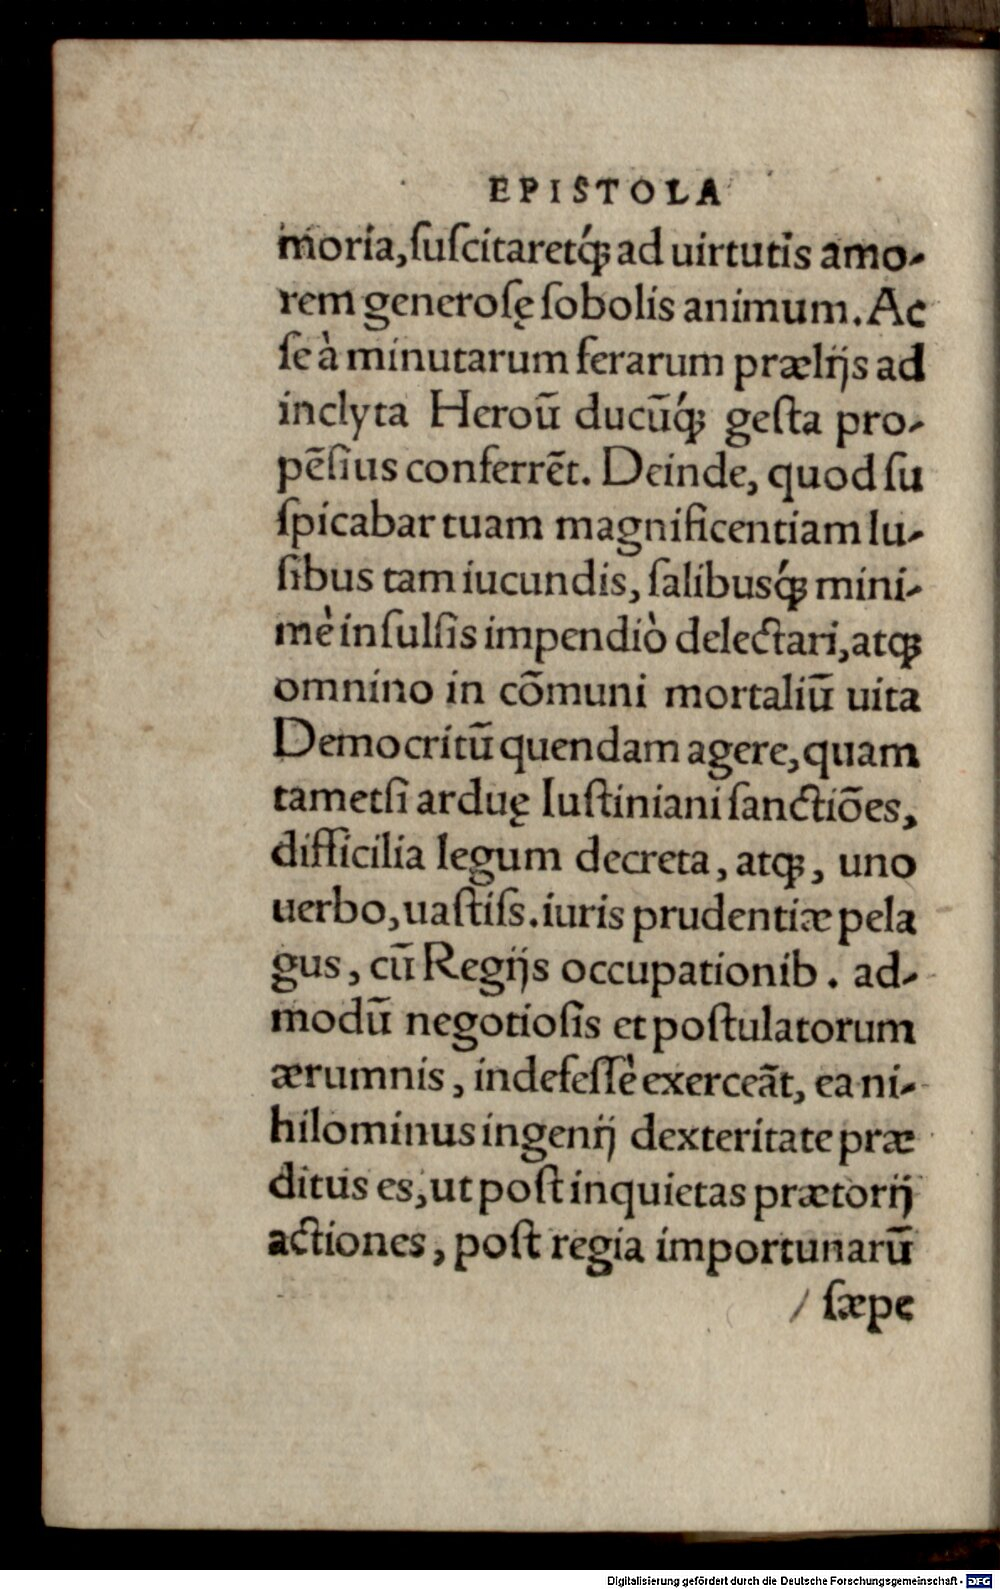 EPISTOLA
moria, ſuſcitaretq́ꝫ ad uirtutis amo-
rem generoſę ſobolis animum. Ac
ſe à minutarum ferarum prælijs ad
inclyta Heroū ducūq́ꝫ geſta pro-
pēſius conferrēt. Deinde, quod ſu
ſpicabar tuam magnificentiam lu-
ſibus tam iucundis, ſalibusq́ꝫ mini-
mè inſulſis impendiò delectari, atqꝫ
omnino in cōmuni mortaliū uita
Democritū quendam agere, quam
tametſi arduę Iuſtiniani ſanctiōes,
difficilia legum decreta, atqꝫ, uno
uerbo, uaſtiſs. iuris prudentiæ pela
gus, cū Regijs occupationib. ad-
modū negotioſis et poſtulatorum
ærumnis, indefeſſè exerceāt, ea ni-
hilominus ingenij dexteritate præ
ditus es, ut poſt inquietas prætorij
actiones, poſt regia importunarū
ſæpe
Digitalisierung gefördert durch die Deutsche Forschungsgemeinschaft - DFG